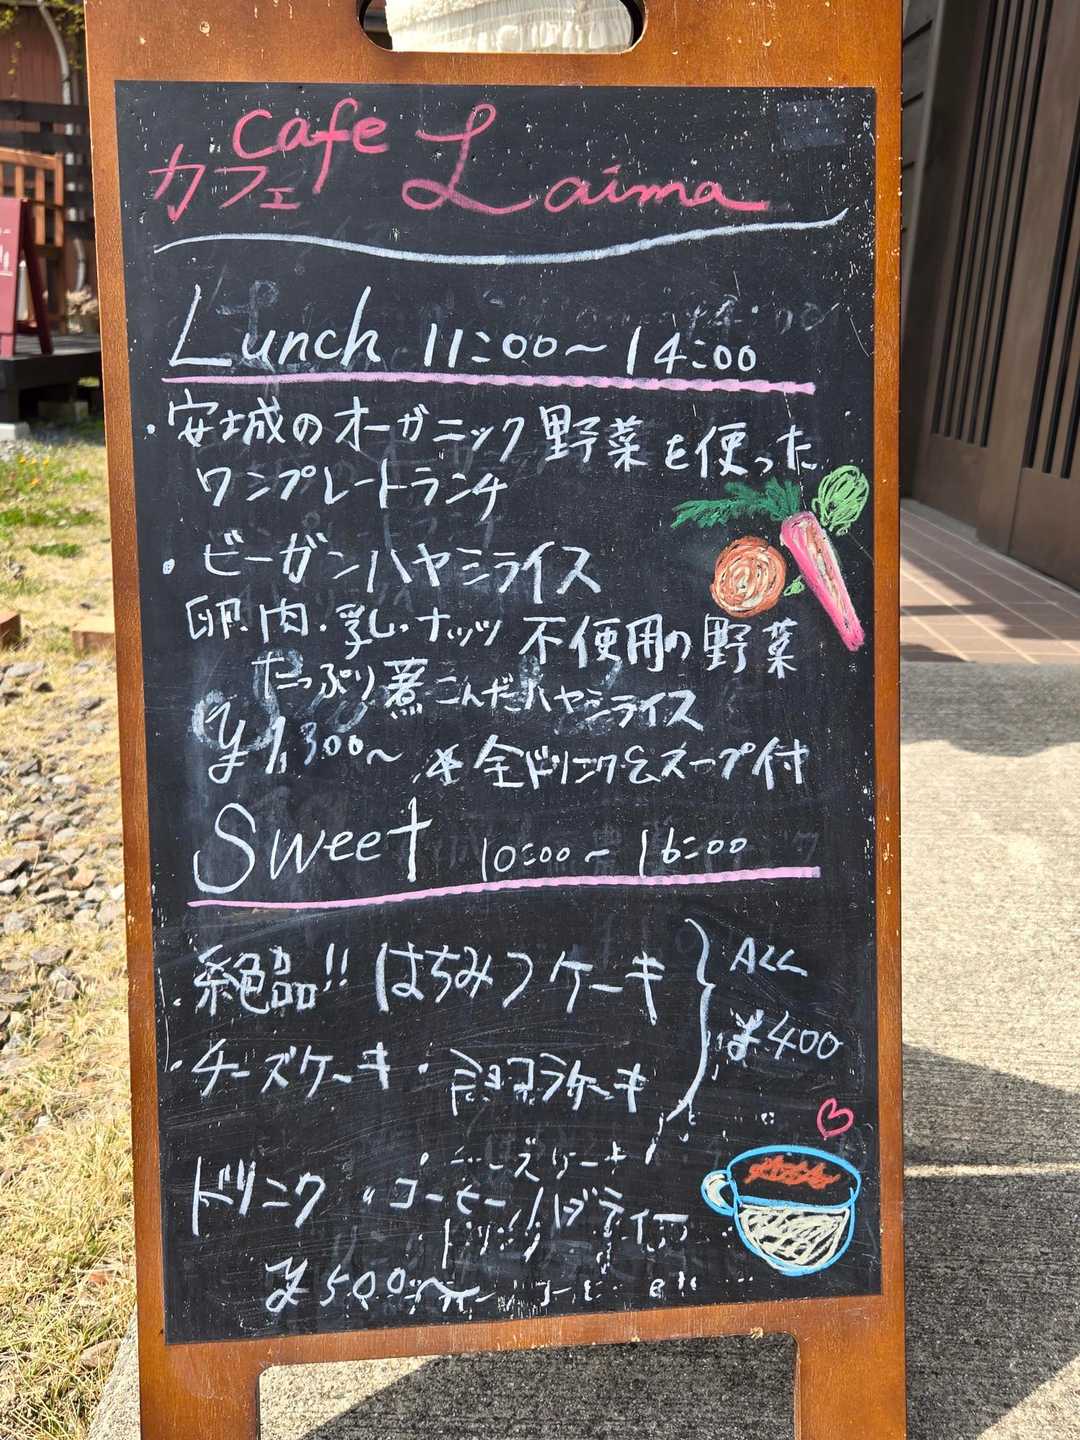 cafe
カフェ Laima
Lunch 11:00～14:00
・安城のオーガニック野菜を使った
ワンプレートランチ
・ビーガンハヤシライス
卵・肉・乳し・ナッツ不使用の野菜
たっぷり煮こんだハヤシライス
¥1,300～ *全ドリンク&スープ付
Sweet 10:00～16:00
・絶品!! はちみつケーキ
・チーズケーキ・ ョコラケーキ
ALL
¥400
ドリンク ・コーヒー/ ティー
¥500～